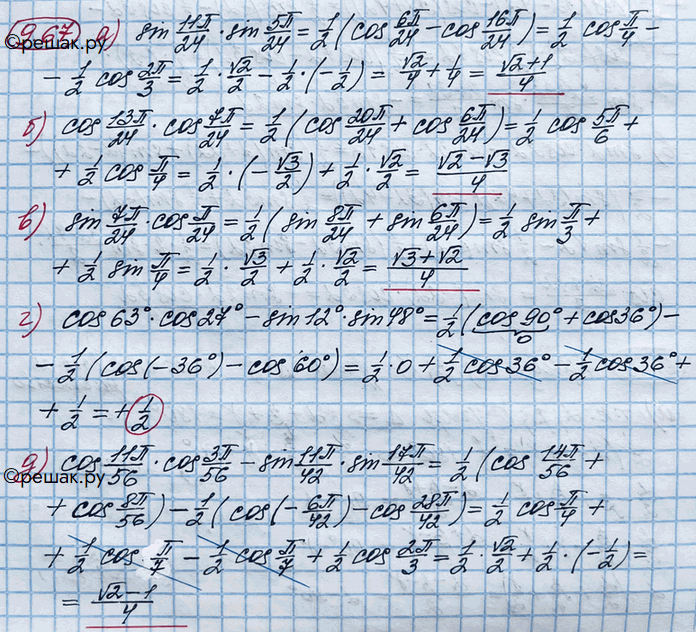 967 а) sin 11π/24 · sin 5π/24 = 1/2 (cos 6π/24 - cos 16π/24) = 1/2 cos π/4 -
©решак.ру
- 1/2 cos 2π/3 = 1/2 · √2/2 - 1/2 · (-1/2) = √2/4 + 1/4 = √2+1/4
б) cos 13π/24 · cos 7π/24 = 1/2 (cos 20π/24 + cos 6π/24) = 1/2 cos 5π/6 +
+ 1/2 cos π/4 = 1/2 · (-√3/2) + 1/2 · √2/2 = √2-√3/4
в) sin 7π/24 · cos π/24 = 1/2 (sin 8π/24 + sin 6π/24) = 1/2 sin π/3 +
+ 1/2 sin π/4 = 1/2 · √3/2 + 1/2 · √2/2 = √3+√2/4
г) cos 63° · cos 27° - sin 12° · sin 48° = 1/2 (cos 90° + cos 36°) -
0
- 1/2 (cos(-36°) - cos 60°) = 1/2 · 0 + 1/2 cos 36° - 1/2 cos 36° +
+ 1/2 = + 1/2
д) cos 11π/56 · cos 3π/56 - sin 11π/42 · sin 17π/42 = 1/2 (cos 14π/56 +
©решак.ру
+ cos 8π/56) - 1/2 (cos(-6π/42) - cos 28π/42) = 1/2 cos π/4 +
+ 1/2 cos π/7 - 1/2 cos π/7 + 1/2 cos 2π/3 = 1/2 · √2/2 + 1/2 · (-1/2) =
= √2-1/4